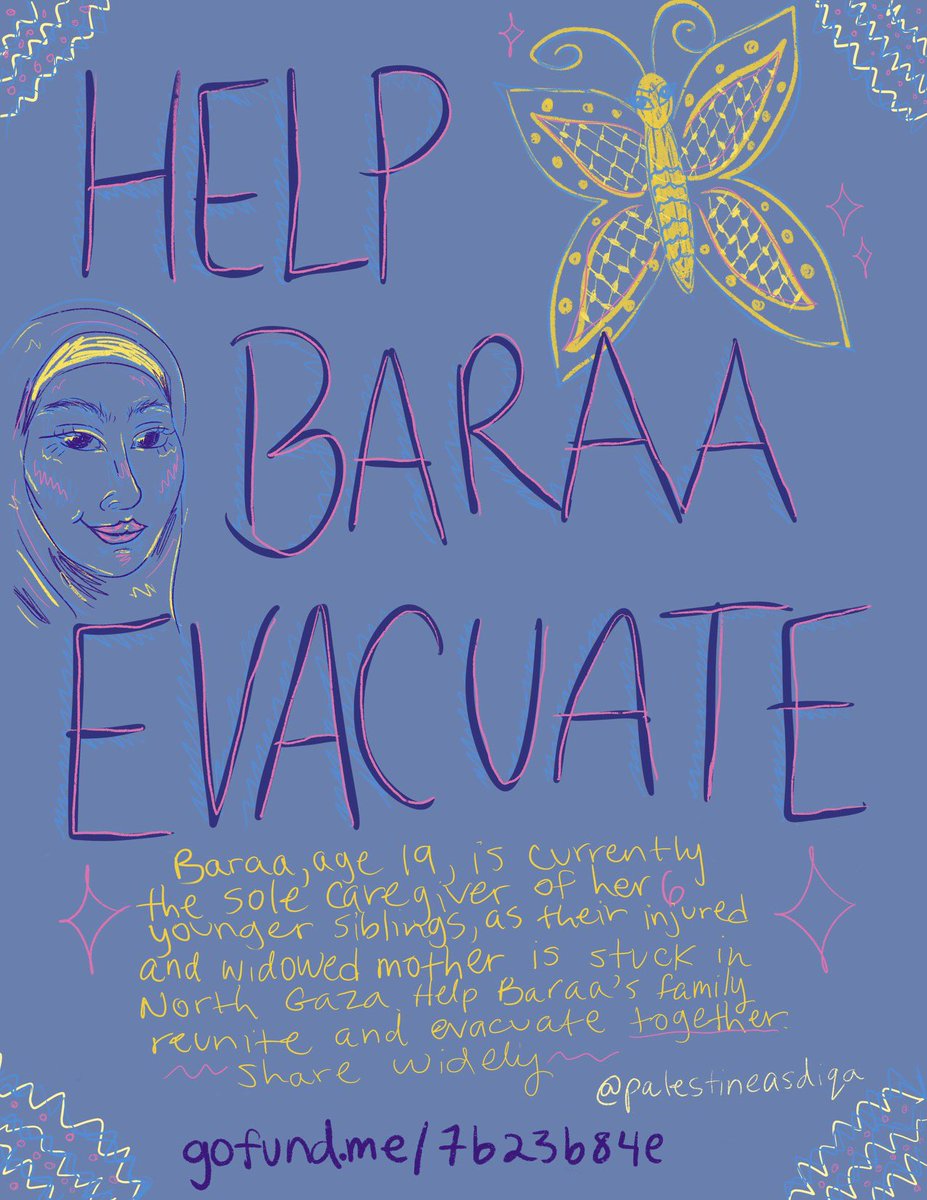 HELP
BARAA
EVACUATE
Baraa, age 19, is currently
the sole caregiver of her 6
younger siblings, as their injured
and widowed mother is stuck in
North Gaza. Help Baraa's family
reunite and evacuate together.
share widely
@palestineasdiqa
gofund.me/7b23b84e